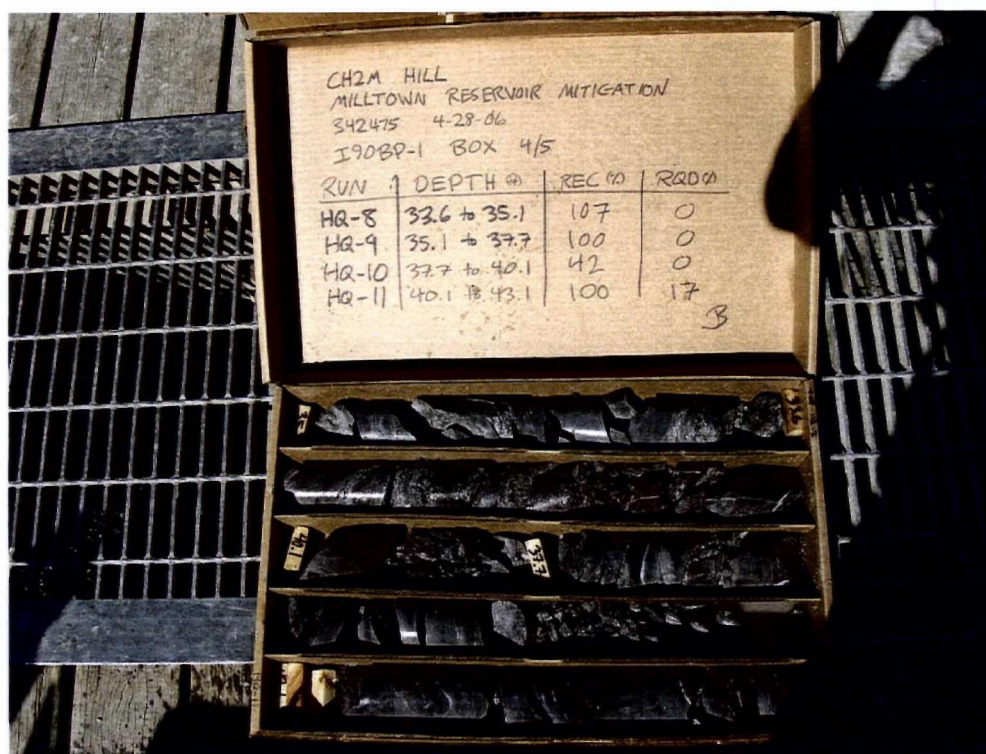 CH2M HILL
MILLTOWN RESERVOIR MITIGATION
342475 4-28-06
I90BP-1 BOX 4/5
RUN DEPTH (ft) REC (%) RQD (%)
HQ-8 33.6 to 35.1 107 0
HQ-9 35.1 to 37.7 100 0
HQ-10 37.7 to 40.1 42 0
HQ-11 40.1 to 43.1 100 17
33.6
40.1
37.7